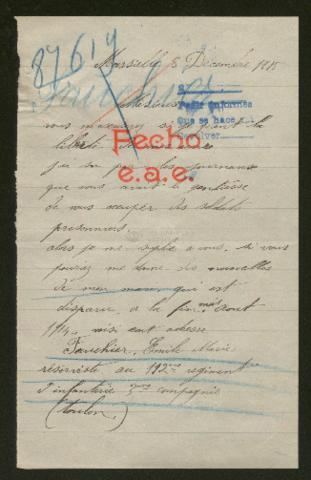 87614
Marseille 5 Décembre 1915
Fouchier
Pedir informes
Que se hace
Fecha
e.a.e.
vous m'excuserez si je prend la
liberté
j'ai su par les journaux
que vous aviez la gentillesse
de vous occuper des soldats
prisonniers.
alors je me a vous, si vous
pouviez me donner des nouvelles
de mon mari, qui est
disparu a la fin mois aout
1914. voici cont adresse
Fouchier, Emile Marie
réserviste au 112eme regiment
d'infanterie compagnie
(toulon)